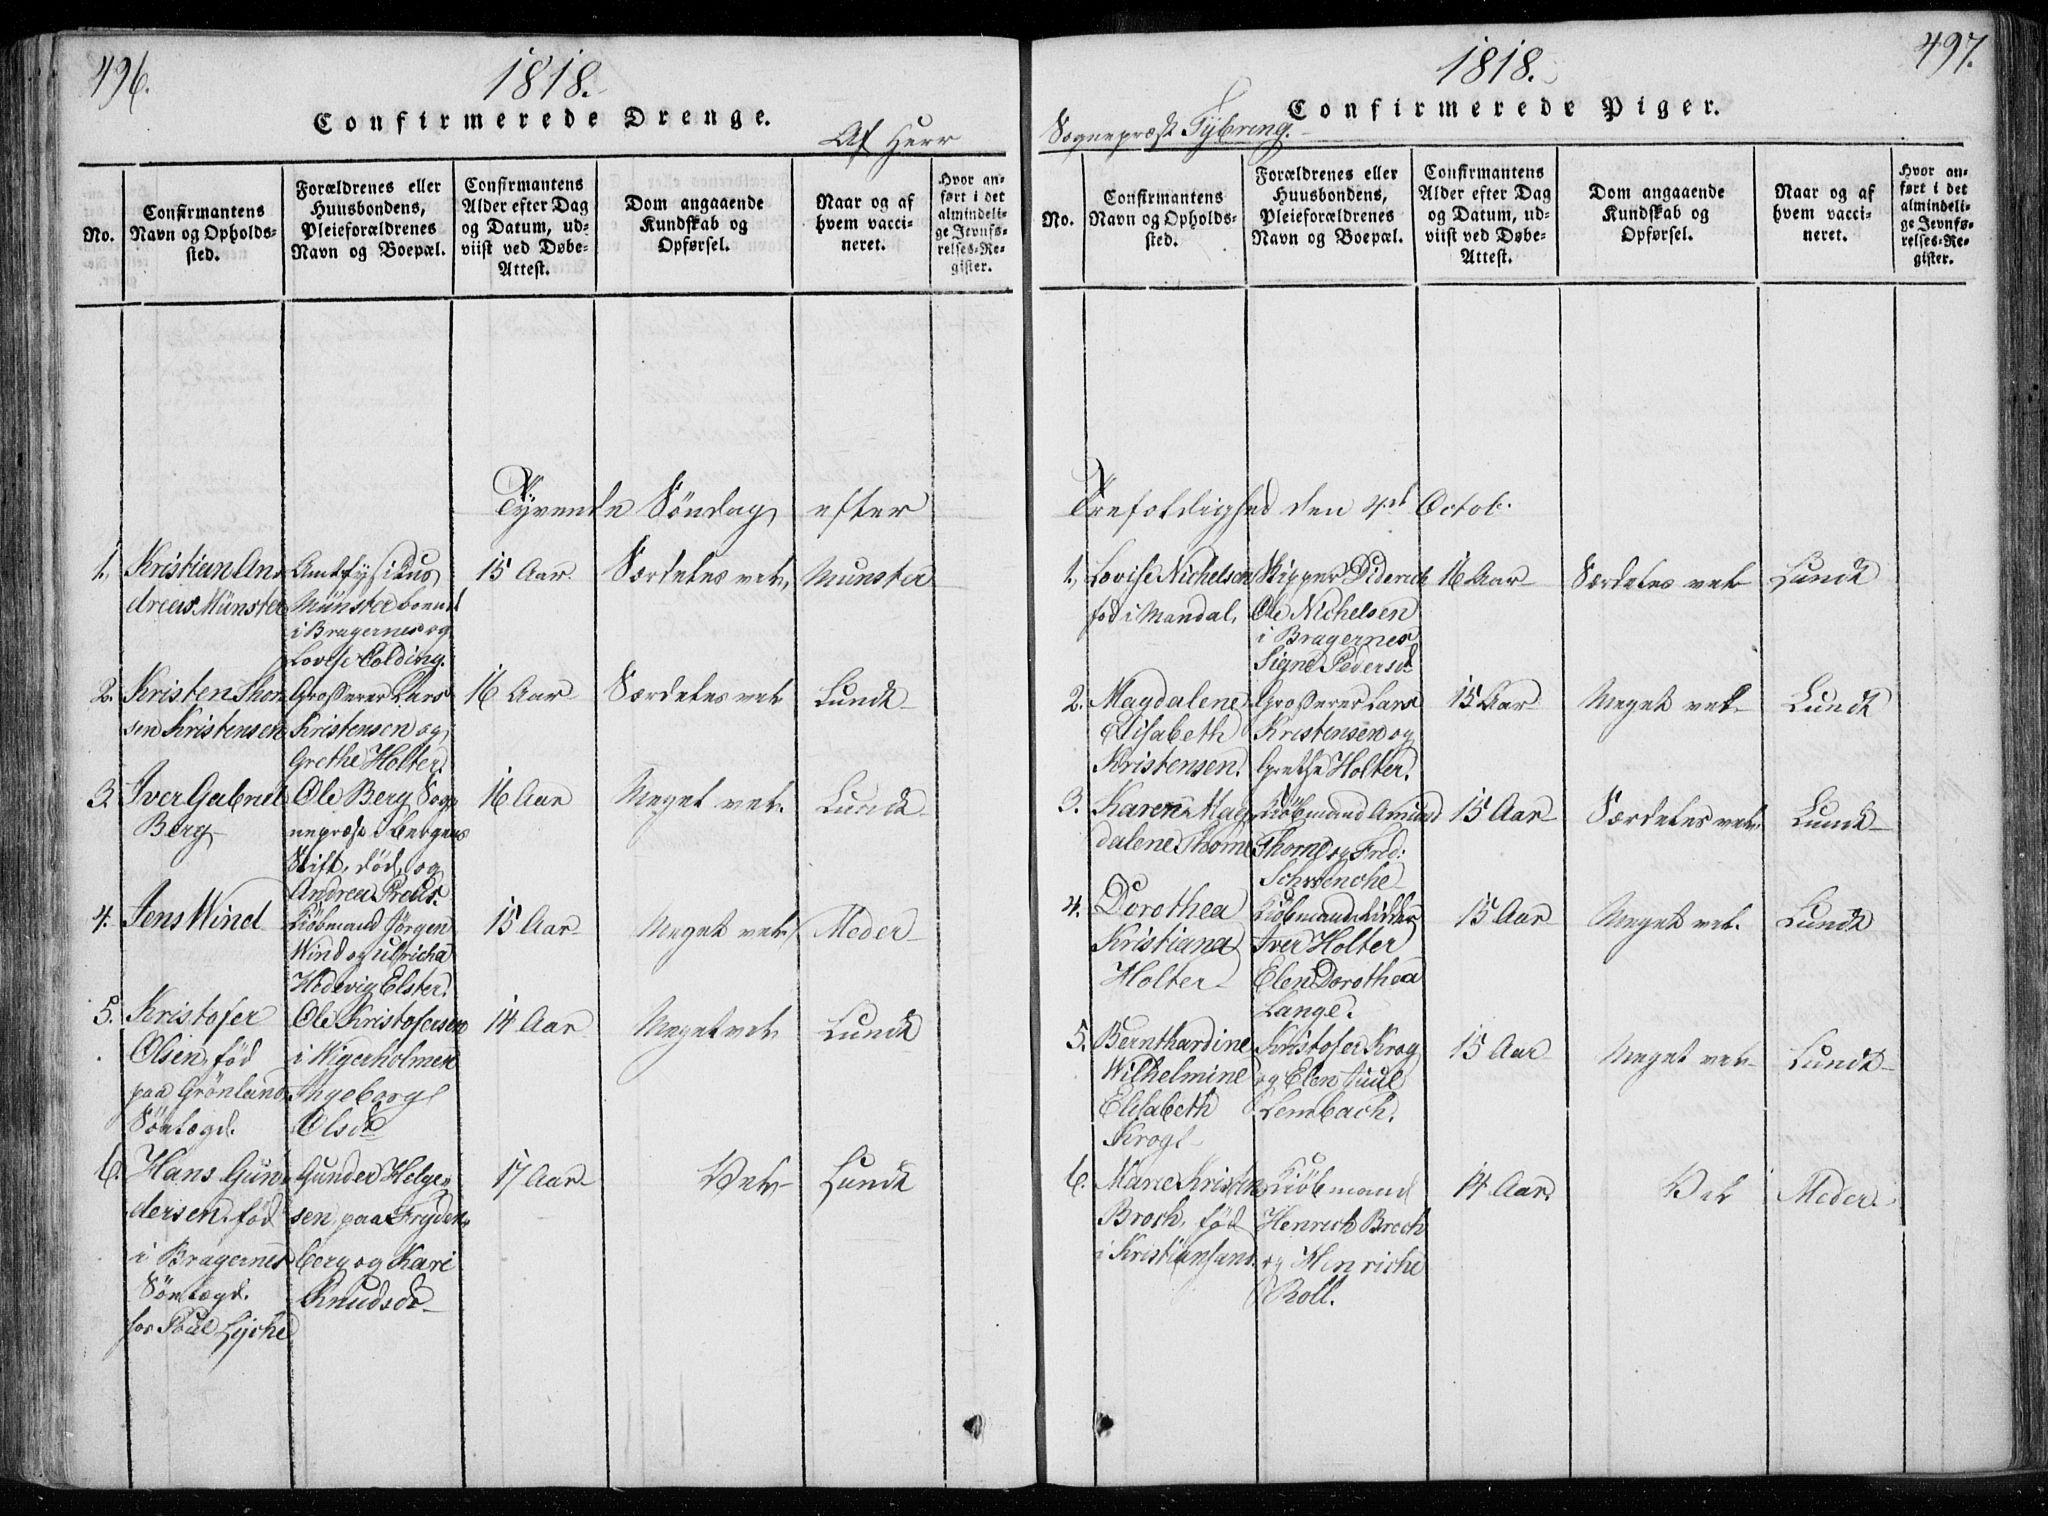 496.
1818.
Confirmerede Drenge.
Af Herr
No.
Confirmantens
Navn og Opholds-
sted.
Forældrenes eller
Huusbondens,
Pleieforældrenes
Navn og Boepæl.
Confirmantens
Alder efter Dag
og Datum, ud-
viist ved Døbe-
Attest.
Dom angaaende
Kundskab og
Opførsel.
Naar og af
hvem vacci-
neret.
Hvor an-
ført i det
almindeli-
ge Jevnfø-
relses-Re-
gister.
Tyvende Söndag efter
1. Kristian An-
dreas Münster
Amtfysikus
Münster boende
i Bragernes og
Lovise Colding.
15 Aar
Særdeles vel.
Munster
2. Kristen Thom
sen Kristensen
Grosserer Lars
Kristensen og
Grethe Holter.
16 Aar
Særdeles vel
Lundt
3. Iver Gabriel
Berg
Ole Berg Sog-
nepræst i Bergens
Stift, död, og
Andrea Preus.
16 Aar
Meget vel.
Lundt
4. Jens Wind
Kiöbmand Jörgen
Wind og Ulricha
Hedevig Elster.
15 Aar
Meget vel
Meder
5. Kristofer
Olsen, föd
paa Grönland
Ole Kristofersen
i
Ingeborg
Olsdr
14 Aar
Meget vel
Lundt
6. Hans Gun-
dersen, föd
i Bragernes
for Poul Lyche
Gunder Helge-
sen paa Fryden-
berg og Kari
Knudsdr
17 Aar
Vel
Lundt
497.
1818.
Confirmerede Piger.
Sognepræst Tybring.
No.
Confirmantens
Navn og Opholds-
sted.
Forældrenes eller
Huusbondens,
Pleieforældrenes
Navn og Boepæl.
Confirmantens
Alder efter Dag
og Datum, ud-
viist ved Døbe-
Attest.
Dom angaaende
Kundskab og
Opførsel.
Naar og af
hvem vacci-
neret.
Hvor an-
ført i det
almindeli-
ge Jevnfø-
relses-Re-
gister.
Trefoldighed den 4de Octob.
1. Lovise Nichelsen
föd i Mandal.
Skipper Diderich
Ole Nichelsen
i Bragernes
Signe Pedersd.
16 Aar
Særdeles vel
Lundt
2. Magdalene
Elisabeth
Kristensen.
Grosserer Lars
Kristensen og
Grethe Holter.
15 Aar
Meget vel
Lundt
3. Karen Mag
dalene Thorne
Kiöbmand Amund
Thorne og Fred:
Schwenche
15 Aar
Særdeles vel
Lundt
4. Dorothea
Kristiana
Holter
Kiöbmand
Iver Holter
Elen Dorothea
Lange.
15 Aar
Meget vel.
Lundt
5. Bernthardine
Wilhelmine
Elisabeth
Krog
Kristofer Krog
og Elen Juul
Lembach.
15 Aar
Meget vel
Lundt
6. Marie Kristine
Broch, föd
i Kristiansand
Kiöbmand
Henrich Broch
og Henriche
Roll.
14 Aar
Vel
Meder.